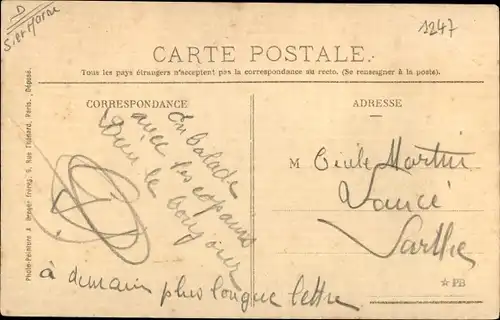 D
S et Marne
1247
CARTE POSTALE.
Tous les pays étrangers n'acceptent pas la correspondance au recto. (Se renseigner à la poste).
CORRESPONDANCE
En balade
avec les copains
bien le bonjour
à demain plus longue lettre
ADRESSE
M Cécile Martin
Vancé
Sarthe
★ PB
Photo-Peinture A Breger frères, 9, Rue Thénard, Paris. Déposé.